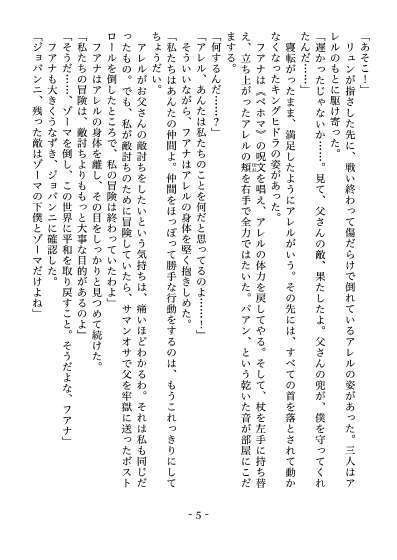 「あそこ！」
　リュンが指さした先に、戦い終わって傷だらけで倒れているアレルの姿があった。三人はア
レルのもとに駆け寄った。
「遅かったじゃないか……。見て、父さんの敵、果たしたよ。父さんの兜が、僕を守ってくれ
たんだ……」
　寝転がったまま、満足したようにアレルがいう。その先には、すべての首を落とされて動か
なくなったキングヒドラの姿があった。
　フアナは《ベホマ》の呪文を唱え、アレルの体力を戻してやる。そして、杖を左手に持ち替
え、立ち上がったアレルの頬を右手で全力ではたいた。パアン、という乾いた音が部屋にこだ
まする。
「何するんだ……？」
「アレル、あんたは私たちのことを何だと思ってるのよ……！」
　そういいながら、フアナはアレルの身体を堅く抱きしめた。
「私たちはあんたの仲間よ。仲間をほっぽって勝手な行動をするのは、もうこれっきりにして
ちょうだい。
　アレルがお父さんの敵討ちをしたいという気持ちは、痛いほどわかるわ。それは私も同じだ
ったもの。でも、私が敵討ちのために冒険していたら、サマンオサで父を牢獄に送ったボスト
ロールを倒したところで、私の冒険は終わっていたわよ」
　フアナはアレルの身体を離し、その目をしっかりと見つめて続けた。
「私たちの冒険は、敵討ちよりもっと大事な目的があるのよ」
「そうだ……、ゾーマを倒し、この世界に平和を取り戻すこと。そうだよな、フアナ」
　フアナも大きくうなずき、ジョバンニに確認した。
「ジョバンニ、残った敵はゾーマの下僕とゾーマだけよね」
- 5 -